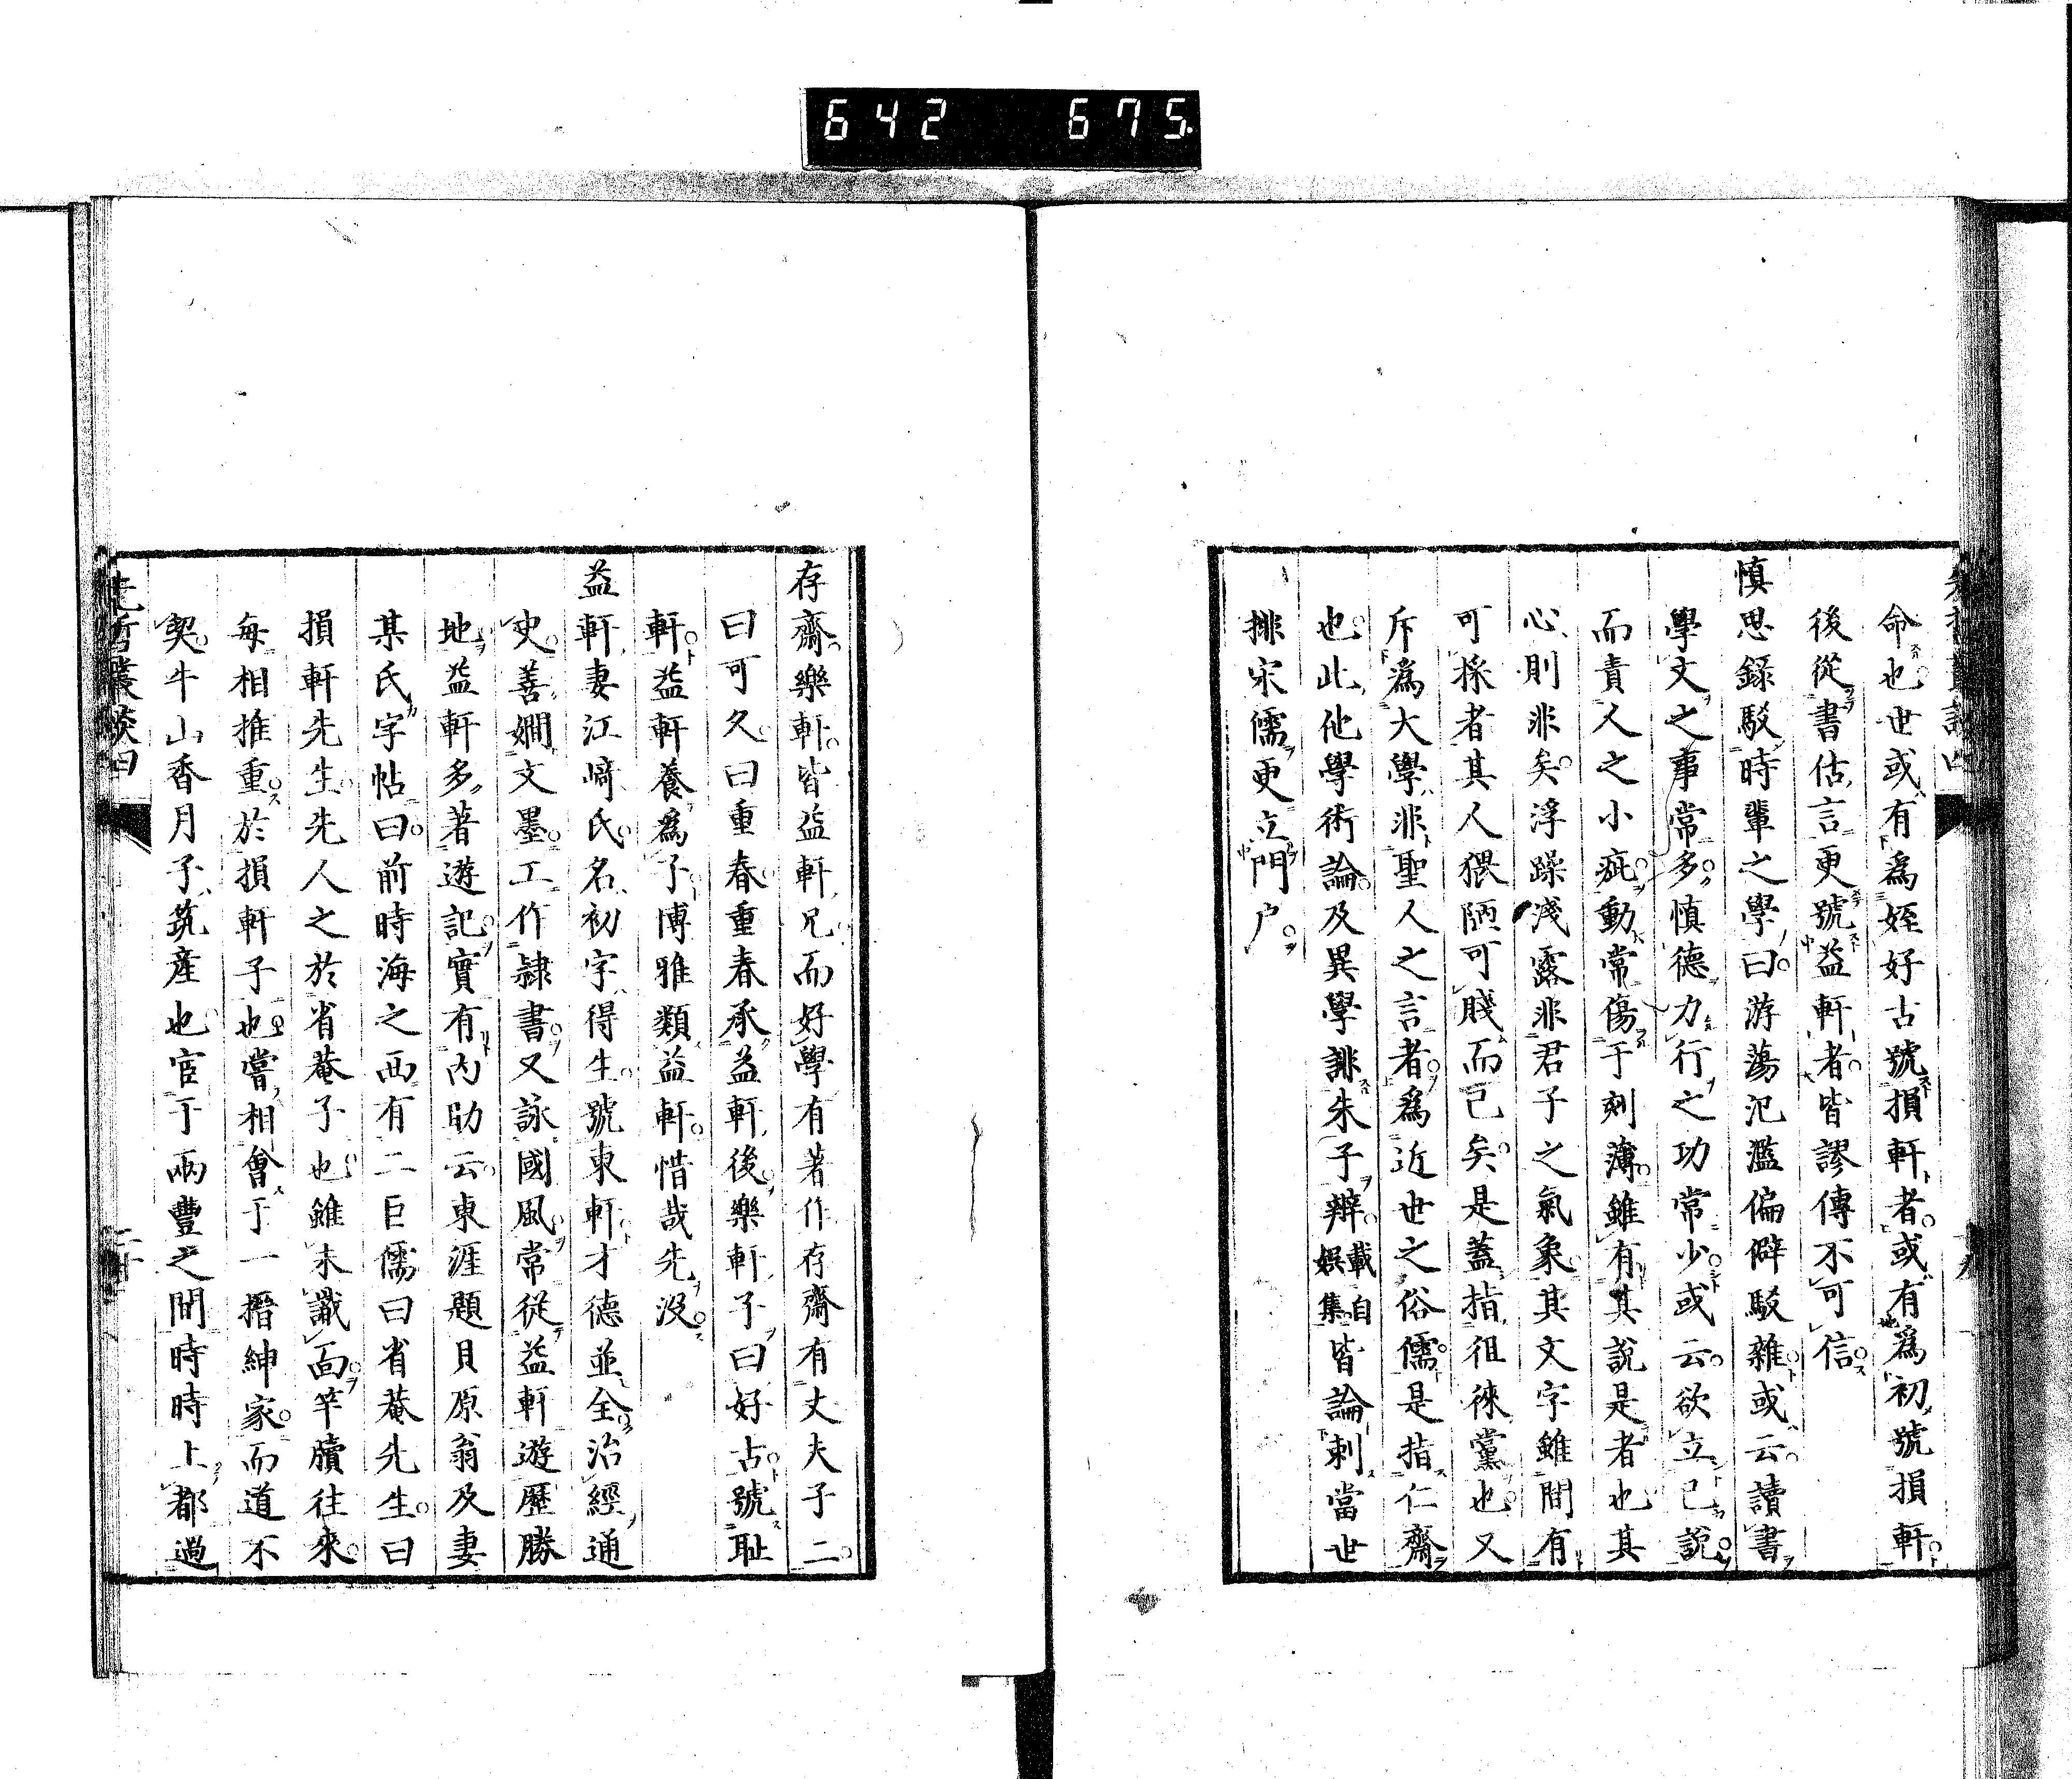 642 675
命也世或有爲姪好古號損軒者或有爲初號損軒
後從書估言更號益軒者皆謬傳不可信
慎思録駁時輩之學曰游蕩氾濫偏僻駁雜或云讀書
學文之事常多慎德力行之功常少或云欲立己説
而責人之小疵動常傷于刻薄雖有其説是者也其
心則非矣浮躁淺露非君子之氣象其文字雖間有
可採者其人猥陋可賤而已矣是蓋指徂徠黨也又
斥爲大學非聖人之言者爲近世之俗儒是指仁齋
也此他學術論及異學誹朱子辨載自娯集皆論刺當世
排宋儒更立門户
存齋樂軒皆益軒兄而好學有著作存齋有丈夫子二
曰可久曰重春重春承益軒後樂軒子曰好古號耻
軒益軒養爲子博雅類益軒惜哉先沒
益軒妻江﨑氏名初字得生號東軒才德並全治經通
史善嫺文墨工作隷書又詠國風常從益軒遊歷勝
地益軒多著遊記實有内助云東涯題貝原翁及妻
某氏字帖曰前時海之西有二巨儒曰省菴先生曰
損軒先生先人之於省菴子也雖未識面竿牘往來
每相推重於損軒子也嘗相會于一搢紳家而道不
契牛山香月子筑產也官于兩豐之間時時上都過
先哲叢談四